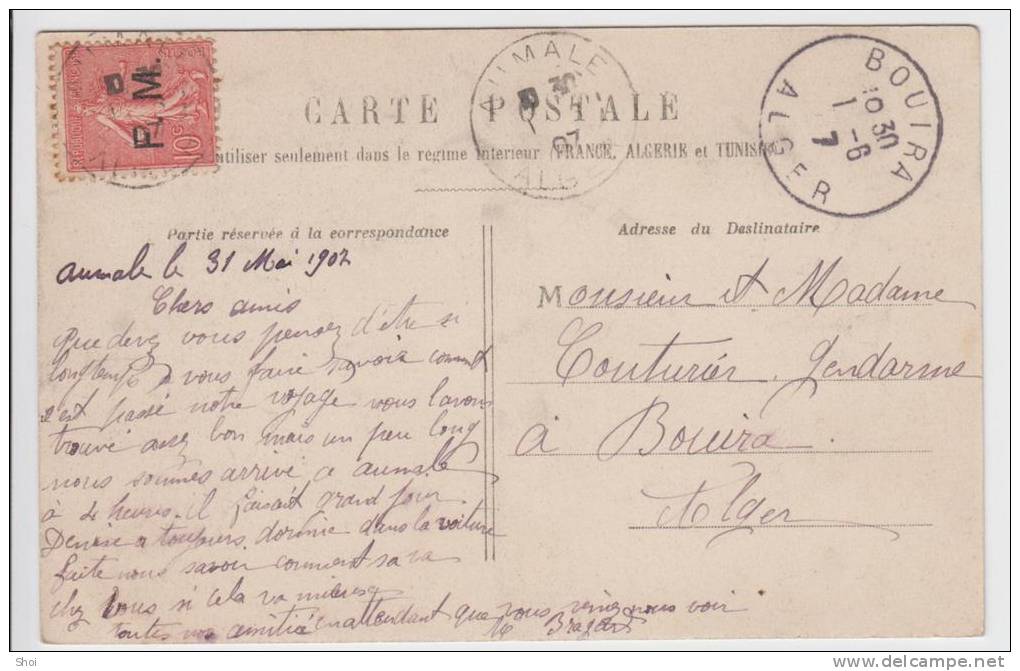 F. M.
REPUBLIQUE FRANCAISE
10c
AUMALE
ALGER
07
BOUIRA
10 30
1-6
7
ALGER
CARTE POSTALE
utiliser seulement dans le régime intérieur (FRANCE, ALGERIE et TUNISIE)
Partie réservée à la correspondance
Aumale le 31 Mai 1907
Chers amis
Que devez vous pensez d'être si
longtemps a vous faire savoir comment
c'est passé notre voyage nous l'avons
trouvé assez bon mais un peu long
nous sommes arrivé a aumale
à 4 heures. il faisait grand jour
Denise a toujours dormie dans la voiture
faite nous savoir comment sa va
chez vous si cela va mieux
toutes nos amitié en attendant que vous venez nous voir
Adresse du Destinataire
Monsieur et Madame
Couturier, Gendarme
à Bouira.
Alger
Shoi
delcampe.net